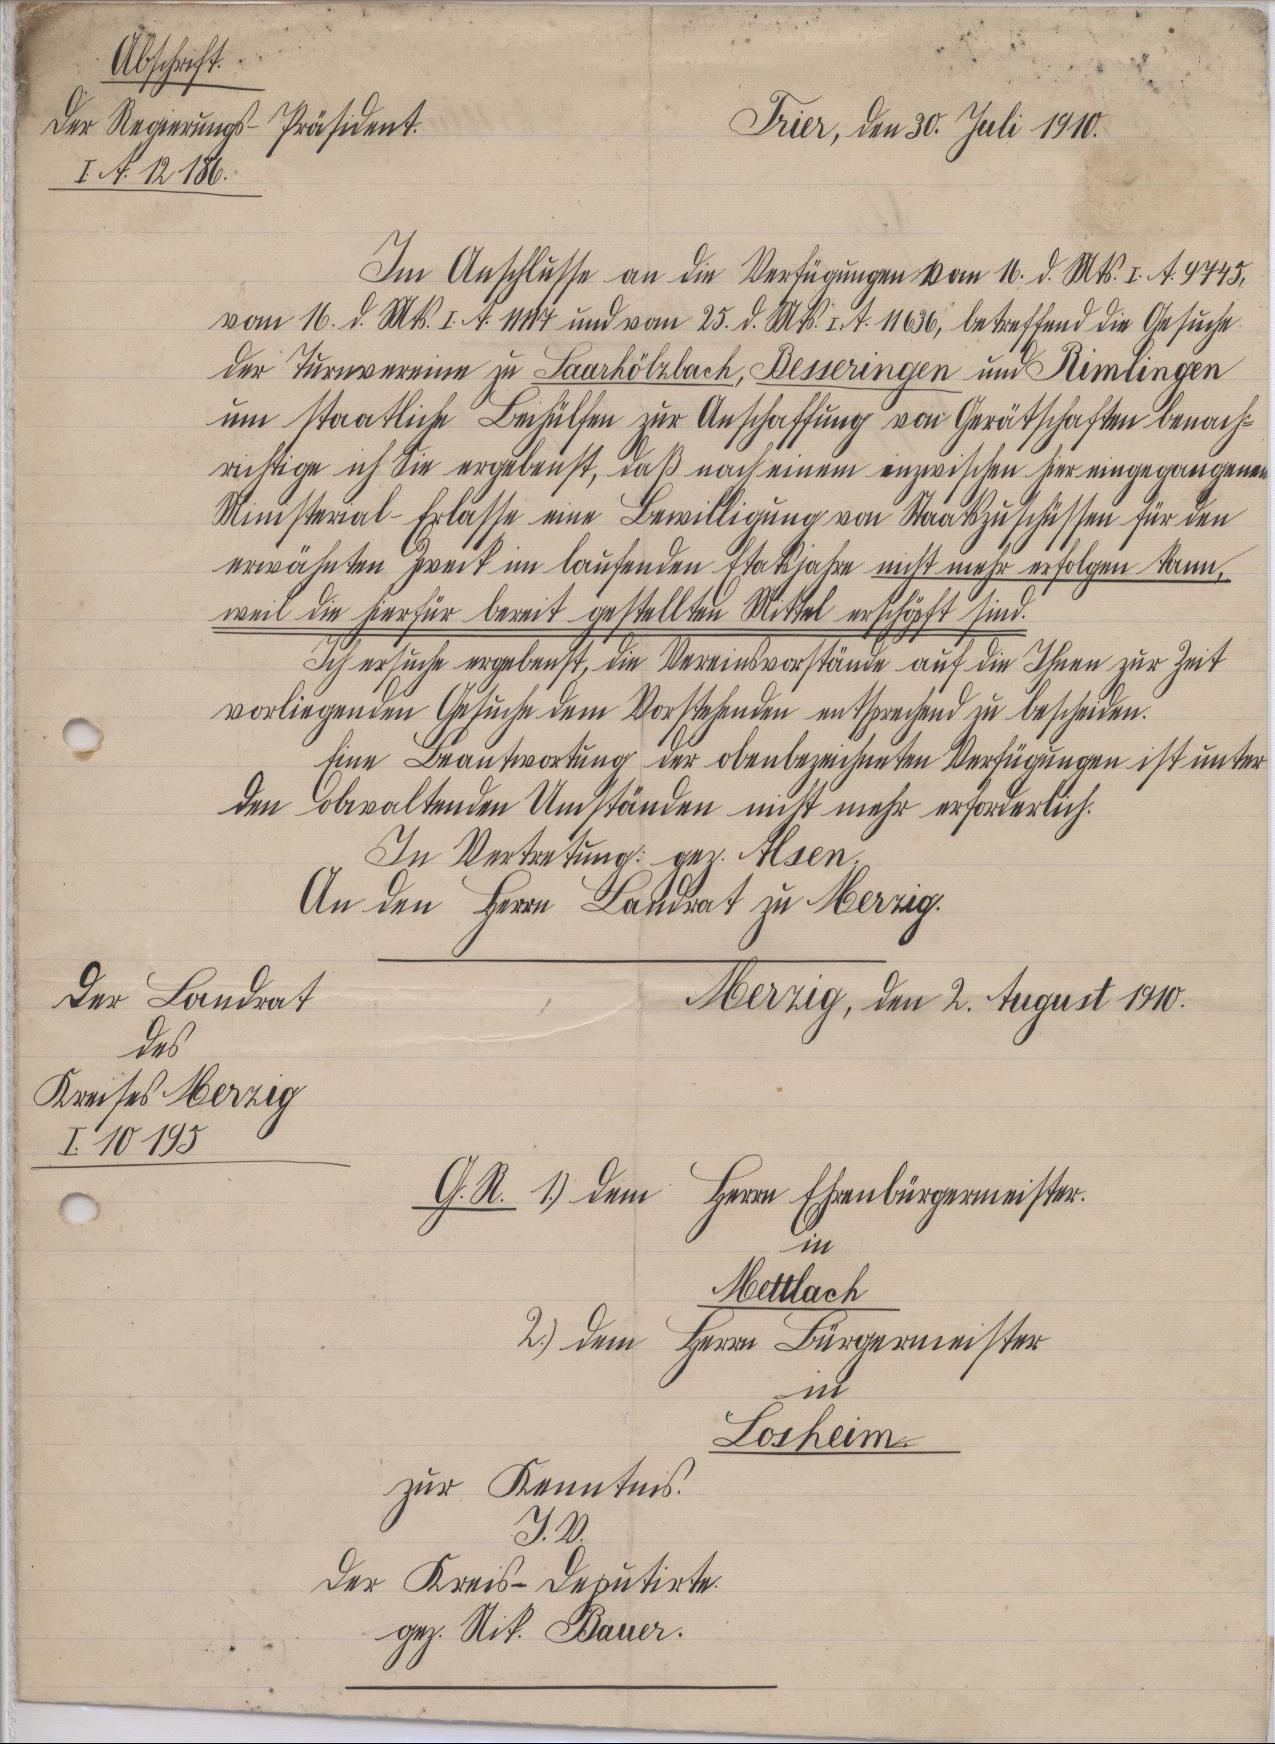 Abschrift.
Der Regierungs-Präsident.
Trier, den 30. Juli 1910.
I. A. 12 186.
Im Anschlusse an die Verfügungen vom 11. d. Mts. I. A. 9745,
vom 16. d. Mts. I. A. 11117 und vom 25. d. Mts. I. A. 11636, betreffend die Gesuche
der Turnvereine zu Saarhölzbach, Besseringen und Rimlingen
um staatliche Beihülfen zur Anschaffung von Gerätschaften benach=
richtige ich Sie ergebenst, daß nach einem inzwischen hier eingegangenen
Ministerial-Erlasse eine Bewilligung von Staatszuschüssen für den
erwähnten Zweck im laufenden Etatsjahre nicht mehr erfolgen kann,
weil die hierfür bereit gestellten Mittel erschöpft sind.
Ich ersuche ergebenst, die Vereinsvorstände auf die Ihnen zur Zeit
vorliegenden Gesuche dem Vorstehenden entsprechend zu bescheiden.
Eine Beantwortung der obenbezeichneten Verfügungen ist unter
den obwaltenden Umständen nicht mehr erforderlich.
In Vertretung: gez. Alsen.
An den Herrn Landrat zu Merzig.
Der Landrat
Merzig, den 2. August 1910.
des
Kreises Merzig
I. 10 195
G. R. 1.) dem Herrn Ehrenbürgermeister.
in
Mettlach
2.) dem Herrn Bürgermeister
in
Losheim.
zur Kenntnis.
I. V.
Der Kreis-Deputirte.
gez. Nik. Bauer.